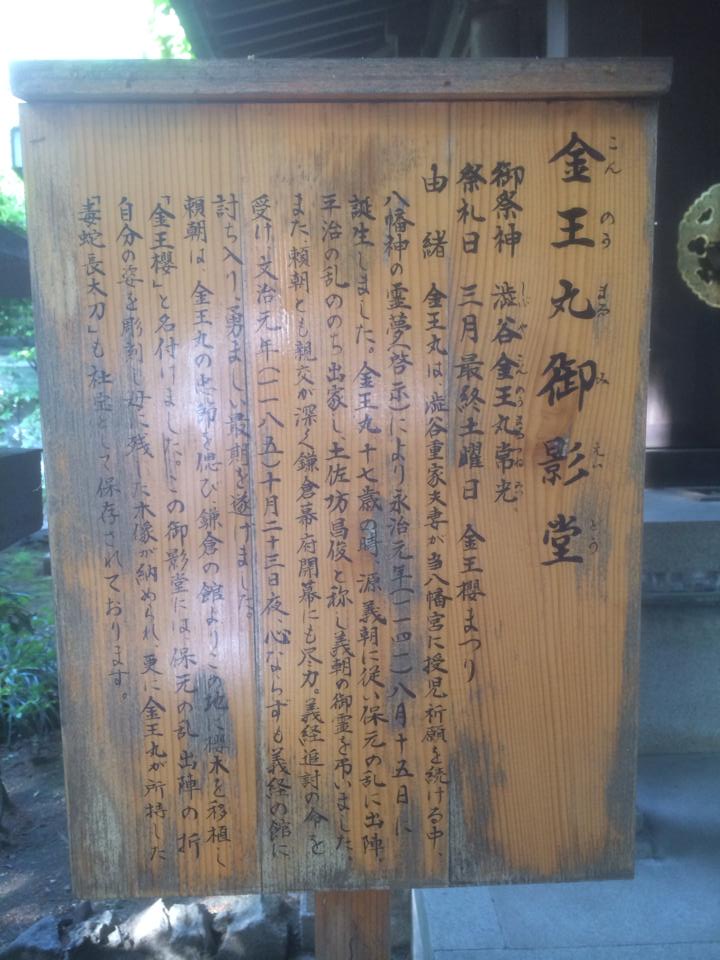 金王丸御影堂
こんのうまるみえいどう
御祭神 澁谷金王丸常光
しぶやこんのうまるつねみつ
祭礼日 三月最終土曜日 金王櫻まつり
由緒 金王丸は、澁谷重家夫妻が当八幡宮に授児祈願を続ける中、
八幡神の霊夢(啓示)により永治元年(一一四一)八月十五日に
誕生しました。金王丸十七歳の時、源義朝に従い保元の乱に出陣。
平治の乱ののち出家し、土佐坊昌俊と称し義朝の御霊を弔いました。
また、頼朝とも親交が深く鎌倉幕府開幕にも尽力。義経追討の命を
受け、文治元年(一一八五)十月二十三日夜、心ならずも義経の館に
討ち入り、勇ましい最期を遂げました。
頼朝は、金王丸の忠節を偲び、鎌倉の館よりこの地に櫻木を移植し
「金王櫻」と名付けました。この御影堂には、保元の乱出陣の折
自分の姿を彫刻し母に残した木像が納められ、更に金王丸が所持した
「毒蛇長太刀」も社宝として保存されております。